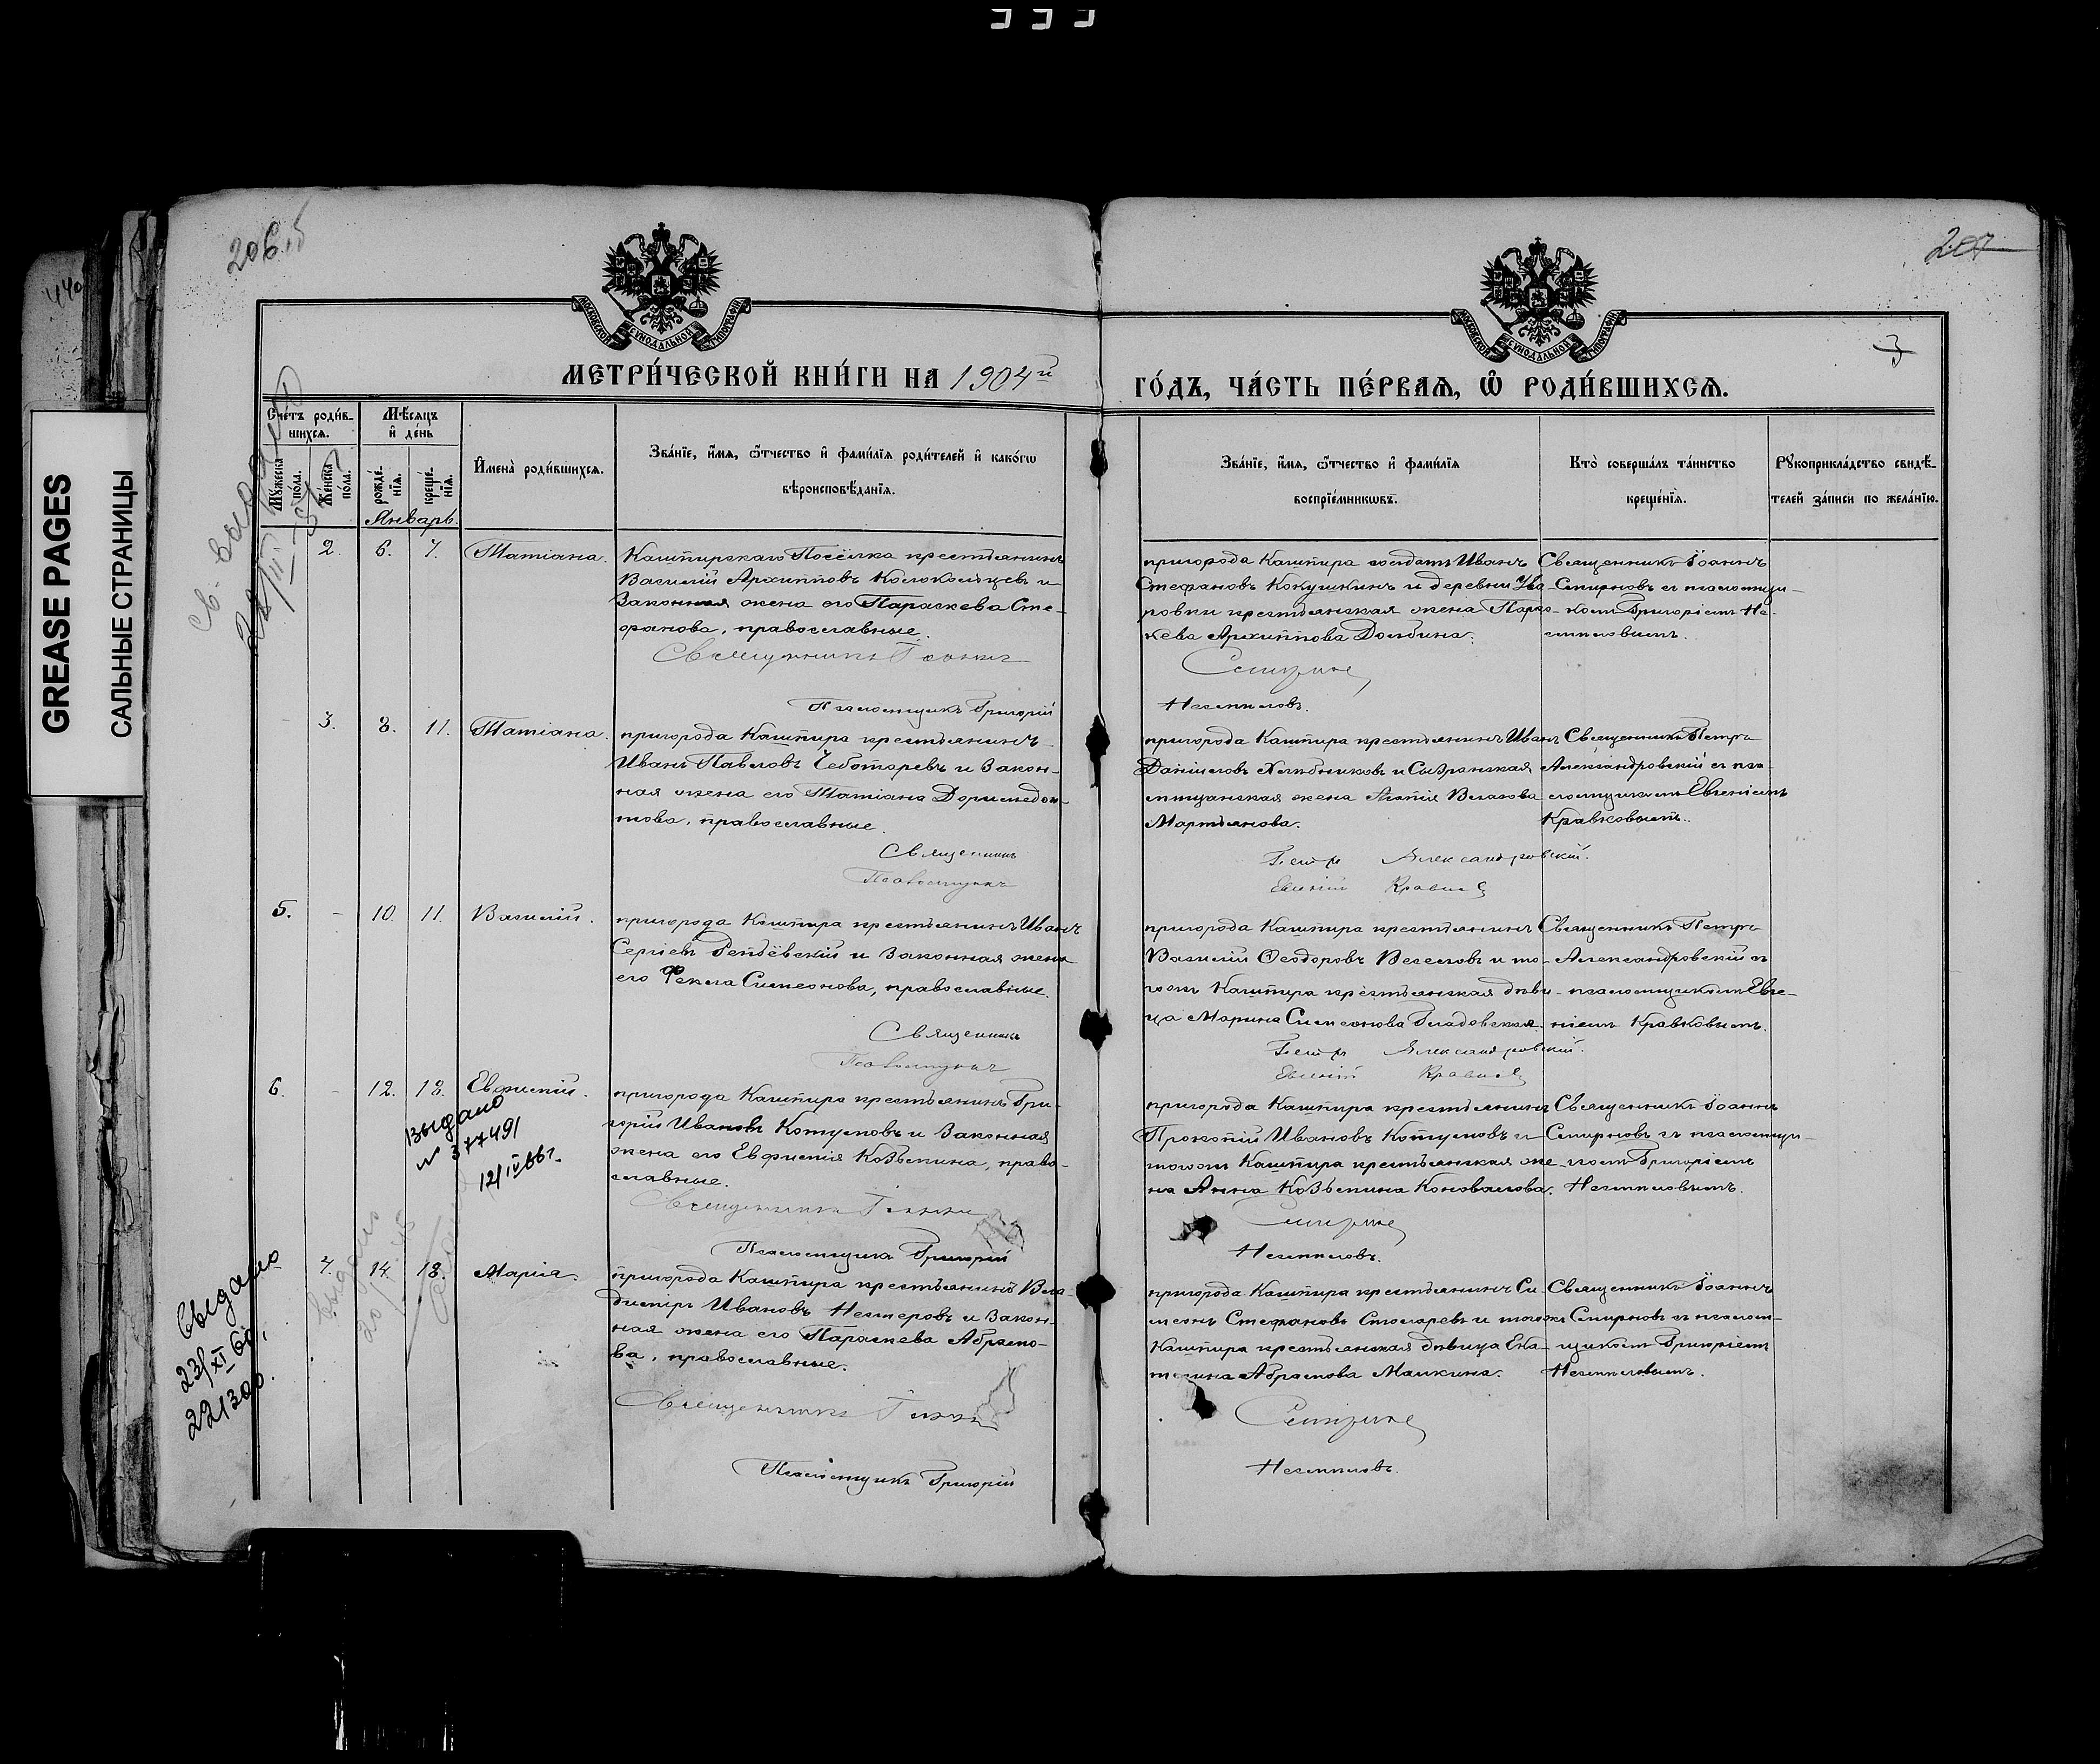 206 об
207
440
3
GREASE PAGES
САЛЬНЫЕ СТРАНИЦЫ
МОСКОВСКОЙ СѴНОДАЛЬНОЙ ТИПОГРАФІИ
МОСКОВСКОЙ СѴНОДАЛЬНОЙ ТИПОГРАФІИ
МЕТРИ́ЧЕСКОЙ КНИ́ГИ НА 1904й
ГО́ДЪ, ЧА́СТЬ ПЕ́РВАѦ, Ѽ РОДИ́ВШИХСѦ.
Сче́тъ роди́в-
шихсѧ.
Мѹ́жеска по́ла.
Же́нска по́ла.
Мѣ́сѧцъ
и҆ де́нь
рожде́-
нїѧ.
креще́-
нїѧ.
Январь.
И҆мена̀ роди́вшихсѧ.
Зва́нїе, и҆́мѧ, ѻ҆́тчество и҆ фами́лїѧ роди́телей и҆ како́гѡ
вѣроисповѣ́данїѧ.
Зва́нїе, и҆́мѧ, ѻ҆́тчество и҆ фами́лїѧ
воспрїе́мникѡвъ.
Кто̀ соверша́лъ та́инство
креще́нїѧ.
Рѹкоприкла́дство свидѣ́-
телей за́писи по жела́нїю.
2. 6. 7. Татіана.
Кашпирскаго Посёлка крестьянинъ
Василій Архипповъ Колокольцевъ и
законная жена его Параскева Сте-
фанова, православные.
Священникъ Іоаннъ
Псаломщикъ Григорій
пригорода Кашпира солдатъ Иванъ
Стефановъ Кокушкинъ и деревни Ува-
ровки крестьянская жена Парас-
кева Архиппова Долбина.
Смирновъ
Несмеловъ.
Священникъ Іоаннъ
Смирновъ съ псаломщи-
комъ Григоріемъ Не-
смеловымъ.
3. 8. 11. Татіана.
пригорода Кашпира крестьянинъ
Иванъ Павловъ Чеботаревъ и закон-
ная жена его Татіана Доримедон-
това, православные.
Священникъ
Псаломщикъ
пригорода Кашпира крестьянинъ Иванъ
Даніиловъ Хлѣбниковъ и Сызранская
мѣщанская жена Агапія Власова
Мартьянова.
Петръ Александровскій.
Евгеній Кравковъ
Священникъ Петръ
Александровскій съ пса-
ломщикомъ Евгеніемъ
Кравковымъ.
5. - 10. 11. Василій.
пригорода Кашпира крестьянинъ Иванъ
Сергіевъ и законная жена
его Фекла Симеонова, православные.
Священникъ
Псаломщикъ
пригорода Кашпира крестьянинъ
Василій Ѳеодоровъ Веселовъ и то-
гожъ Кашпира крестьянская дѣви-
ца Марина Симеонова Гладовская.
Петръ Александровскій.
Евгеній Кравковъ
Священникъ Петръ
Александровскій съ
псаломщикомъ Евге-
ніемъ Кравковымъ.
6. - 12. 18. Евфимій.
выдано
№ 377491
12/IV 66 г.
пригорода Кашпира крестьянинъ Гри-
горій Ивановъ Котумовъ и законная
жена его Евфимія Козьмина, право-
славные.
Священникъ Іоаннъ
Псаломщикъ Григорій
пригорода Кашпира крестьянинъ
Прокопій Ивановъ Котумовъ и
тогожъ Кашпира крестьянская же-
на Анна Козьмина Коновалова.
Смирновъ
Несмеловъ.
Священникъ Іоаннъ
Смирновъ съ псаломщи-
комъ Григоріемъ
Несмеловымъ.
Выдано
23/XI 60
221300.
4. 14. 18. Марія.
пригорода Кашпира крестьянинъ Вла-
диміръ Ивановъ Нестеровъ и закон-
ная жена его Параскева Абрамо-
ва, православные.
Священникъ Іоаннъ
Псаломщикъ Григорій
пригорода Кашпира крестьянинъ Си-
меонъ Стефановъ Столяревъ и тогожъ
Кашпира крестьянская дѣвица Ека-
терина Абрамова Манкина.
Смирновъ
Несмеловъ.
Священникъ Іоаннъ
Смирновъ съ псалом-
щикомъ Григоріемъ
Несмеловымъ.